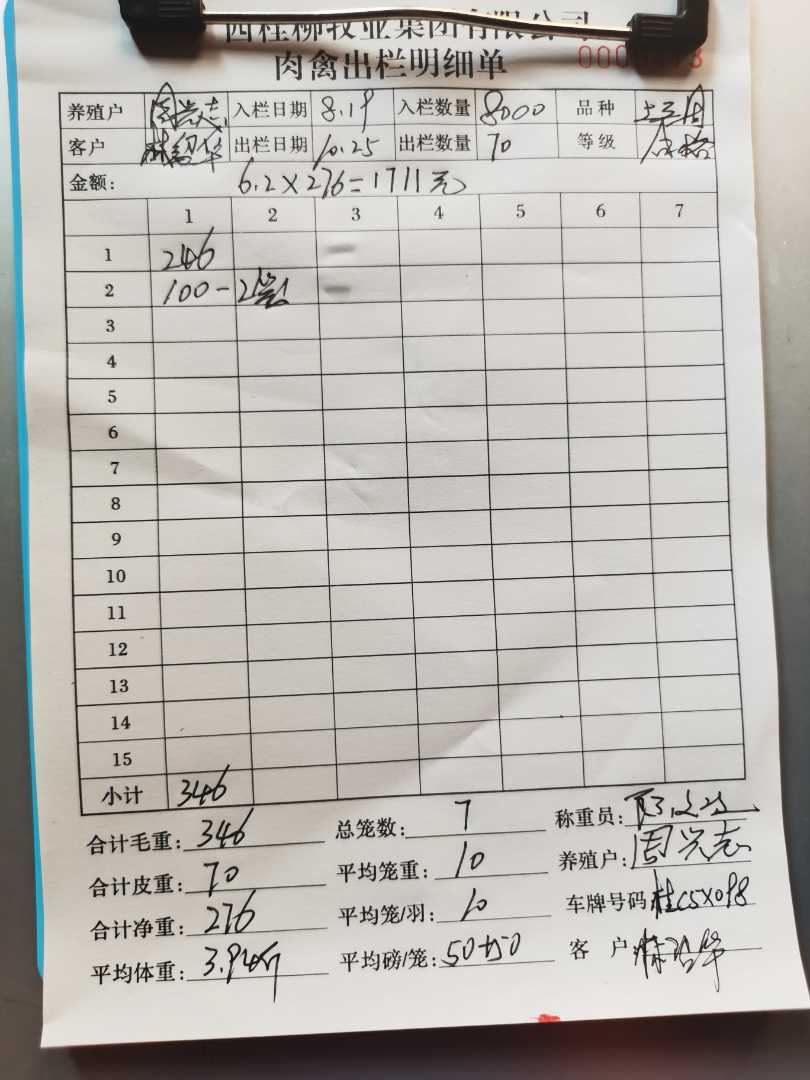 西桂柳牧业集团有限公司
肉禽出栏明细单
养殖户 周兴志 入栏日期 8.19 入栏数量 8000 品种
客户 出栏日期 10.25 出栏数量 70 等级 合格
金额: 6.2×276=1711元
1 2 3 4 5 6 7
1 246
2 100-2笼
3
4
5
6
7
8
9
10
11
12
13
14
15
小计 346
合计毛重: 346 总笼数: 7 称重员:
合计皮重: 70 平均笼重: 10 养殖户: 周兴志
合计净重: 276 平均笼/羽: 10 车牌号码 桂C5X098
平均体重: 3.94斤 平均磅/笼: 50+50 客 户